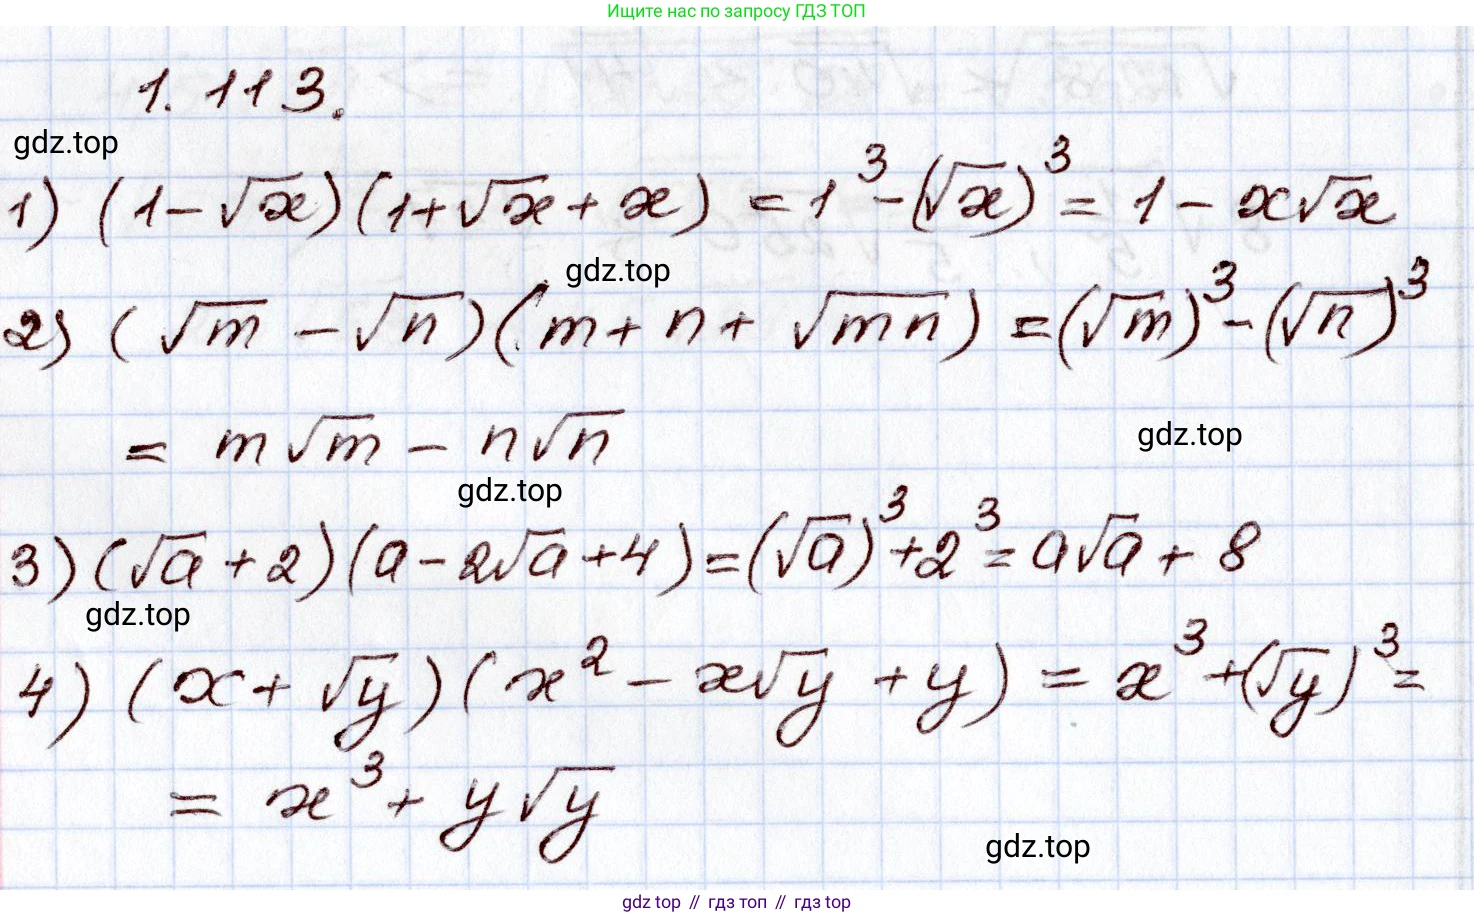 Ищите нас по запросу ГДЗ ТОП
1.113.
gdz.top
1) (1-√x)(1+√x+x) = 1³-(√x)³ = 1 - x√x
gdz.top
2) (√m - √n)(m + n + √mn) = (√m)³ - (√n)³
= m√m - n√n
gdz.top
gdz.top
3) (√a + 2)(a - 2√a + 4) = (√a)³ + 2³ = a√a + 8
gdz.top
4) (x + √y)(x² - x√y + y) = x³ + (√y)³ =
= x³ + y√y
gdz.top
gdz top // гдз топ // гдз top